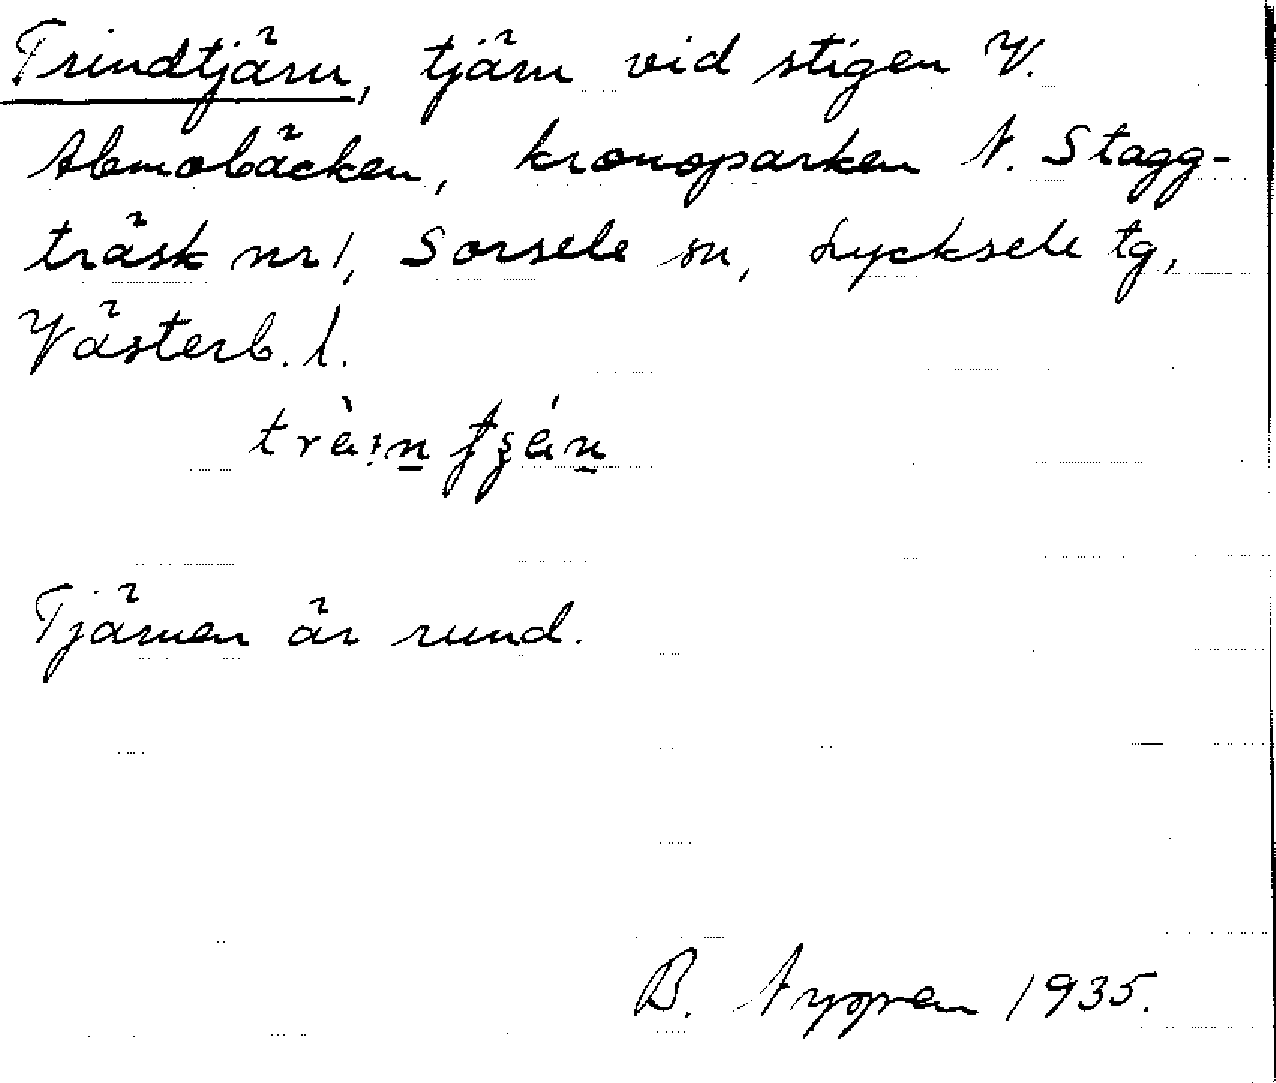 Trindtjärn, tjärn vid stigen V.
Abmobäcken, kronoparken N. Stagg-
träsk nr 1, Sorsele sn, Lycksele tg,
Västerb. l.
Tjärnen är rund.
B. 1935.